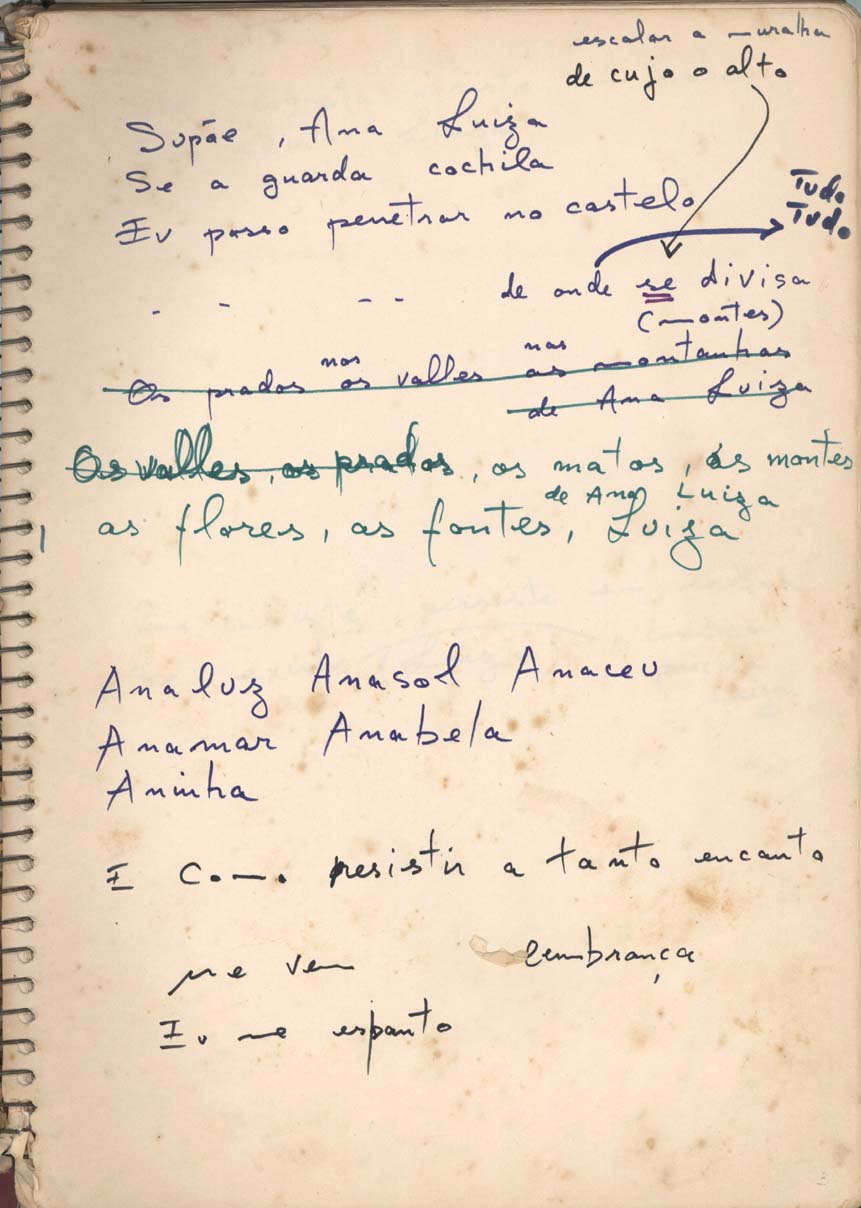 escalar a muralha
de cujo o alto
Supõe, Ana Luiza
Se a guarda cochila
Eu posso penetrar no castelo
Tudo
Tudo
de onde se divisa
(montes)
nos nas
Os prados os valles as montanhas
de Ana Luiza
Os valles, os prados, os matos, os montes
de Ana Luiza
as flores, as fontes, Luiza
Analuz Anasol Anaceu
Anamar Anabela
Aninha
E Como resistir a tanto encanto
me vem lembrança
Eu me espanto